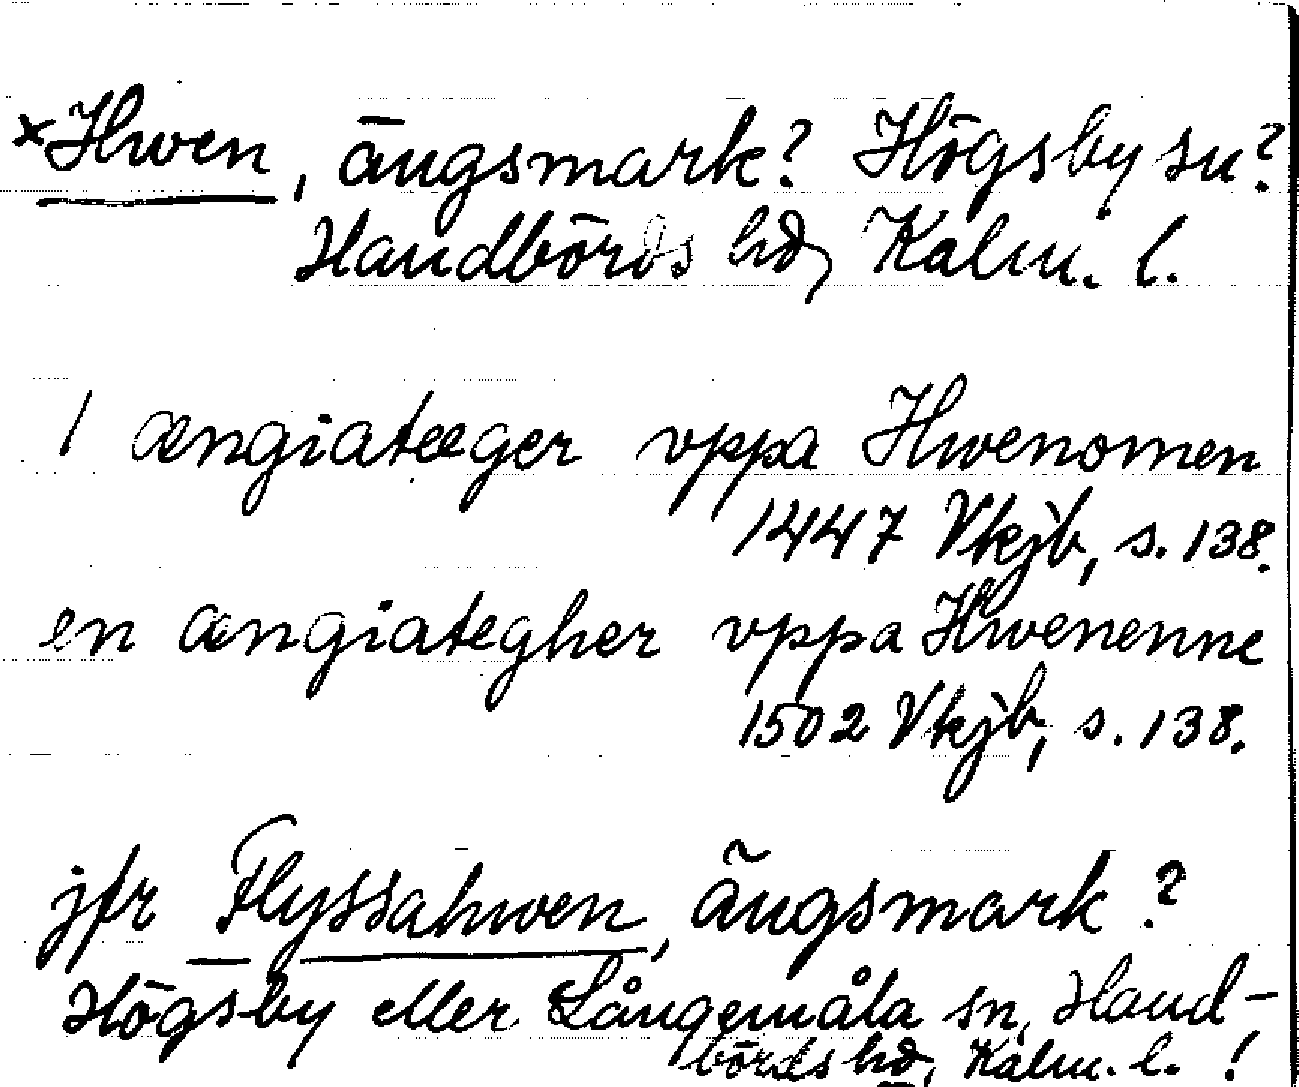 ×Hwen, ängsmark? Högsby sn?
Handbörds hd, Kalm. l.
1 ængiatæger vppa Hwenomen
1447 Vkjb, s. 138.
en ængiategher vppa Hwenenne
1502 Vkjb, s. 138.
jfr Flyssahwen, ängsmark?
Högsby eller Långemåla sn, Hand-
börds hd, Kalm. l. !